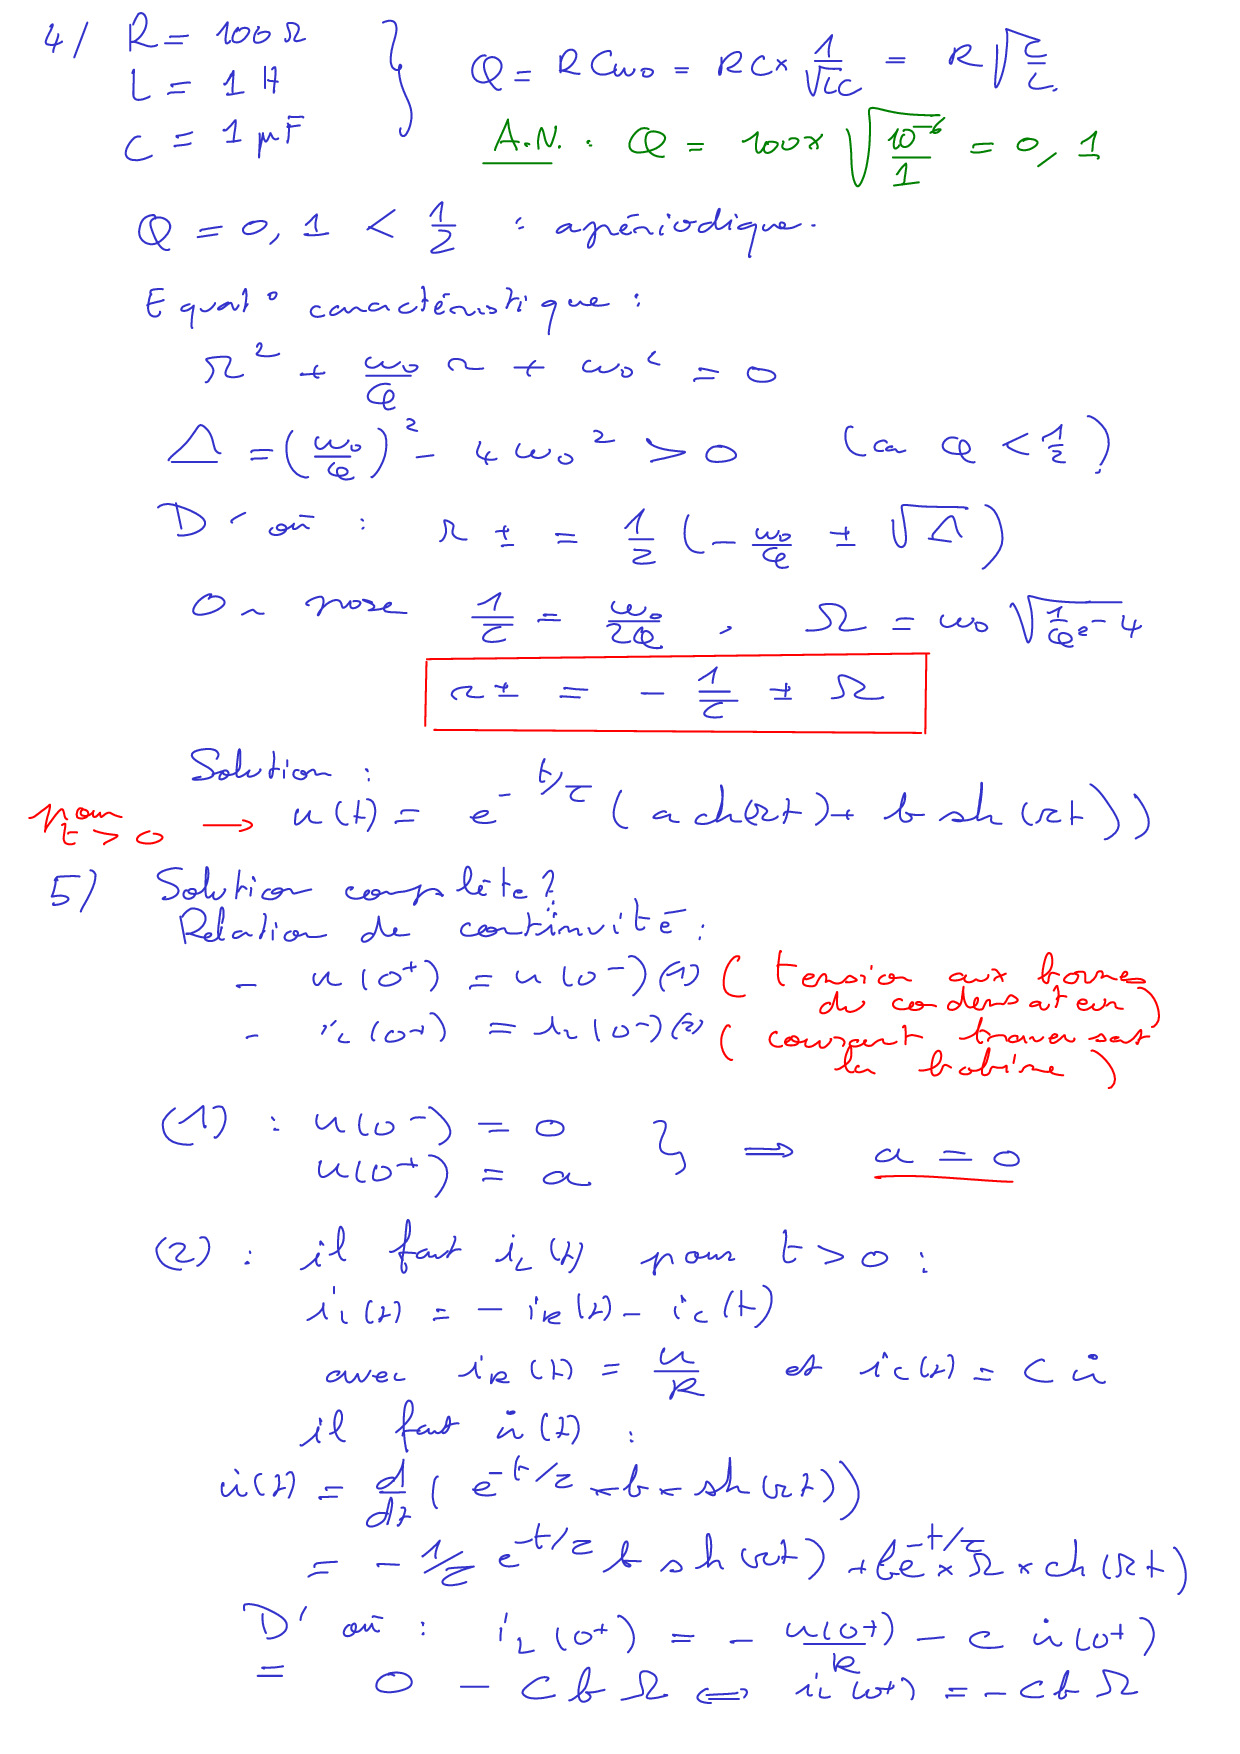 4/ R = 100 Ω
L = 1 H
C = 1 µF
Q = RCω₀ = RC × 1/√LC = R √(C/L).
A.N. : Q = 100 × √(10⁻⁶/1) = 0,1
Q = 0,1 < 1/2 : apériodique.
Equat° caractéristique :
r² + ω₀/Q r + ω₀² = 0
Δ = (ω₀/Q)² - 4 ω₀² > 0 (car Q < 1/2)
D'où : r± = 1/2 (- ω₀/Q ± √Δ)
On pose 1/τ = ω₀/2Q , Ω = ω₀ √(1/Q² - 4)
r± = - 1/τ ± Ω
Solution :
pour t > 0 → u(t) = e^(-t/τ) (a ch(Ωt) + b sh(Ωt))
5) Solution complète ?
Relation de continuité :
- u(0⁺) = u(0⁻) (1) (tension aux bornes du condensateur)
- i_L(0⁺) = i_L(0⁻) (2) (courant traversat la bobine)
(1) : u(0⁻) = 0
u(0⁺) = a } ⟹ a = 0
(2) : il faut i_L(t) pour t > 0 :
i_L(t) = - i_R(t) - i_C(t)
avec i_R(t) = u/R et i_C(t) = C u̇
il faut u̇(t) :
u̇(t) = d/dt (e^(-t/τ) × b × sh(Ωt))
= - 1/τ e^(-t/τ) b sh(Ωt) + b e^(-t/τ) × Ω × ch(Ωt)
D'où : i_L(0⁺) = - u(0⁺)/R - C u̇(0⁺)
= 0 - C b Ω ⟺ i_L(0⁺) = - C b Ω